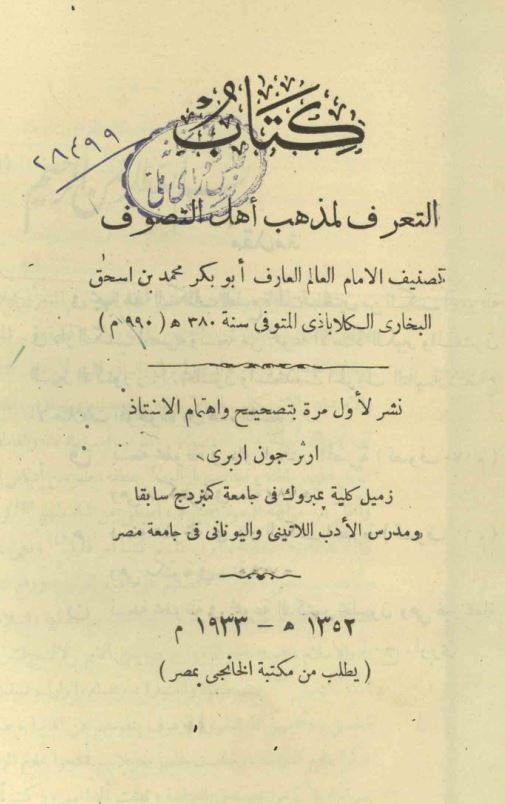 كتاب
٢٨٤٩٩
التعرف لمذهب أهل التصوف
تصنيف الامام العالم العارف أبو بكر محمد بن اسحق
البخارى الكلاباذى المتوفى سنة ٣٨٠ ه ( ٩٩٠ م )
نشر لأول مرة بتصحيح واهتمام الاستاذ
ارثر جون اربرى
زميل كلية بمبروك فى جامعة كمبردج سابقا
ومدرس الأدب اللاتينى واليونانى فى جامعة مصر
١٣٥٢ ه – ١٩٣٣ م
( يطلب من مكتبة الخانجى بمصر )